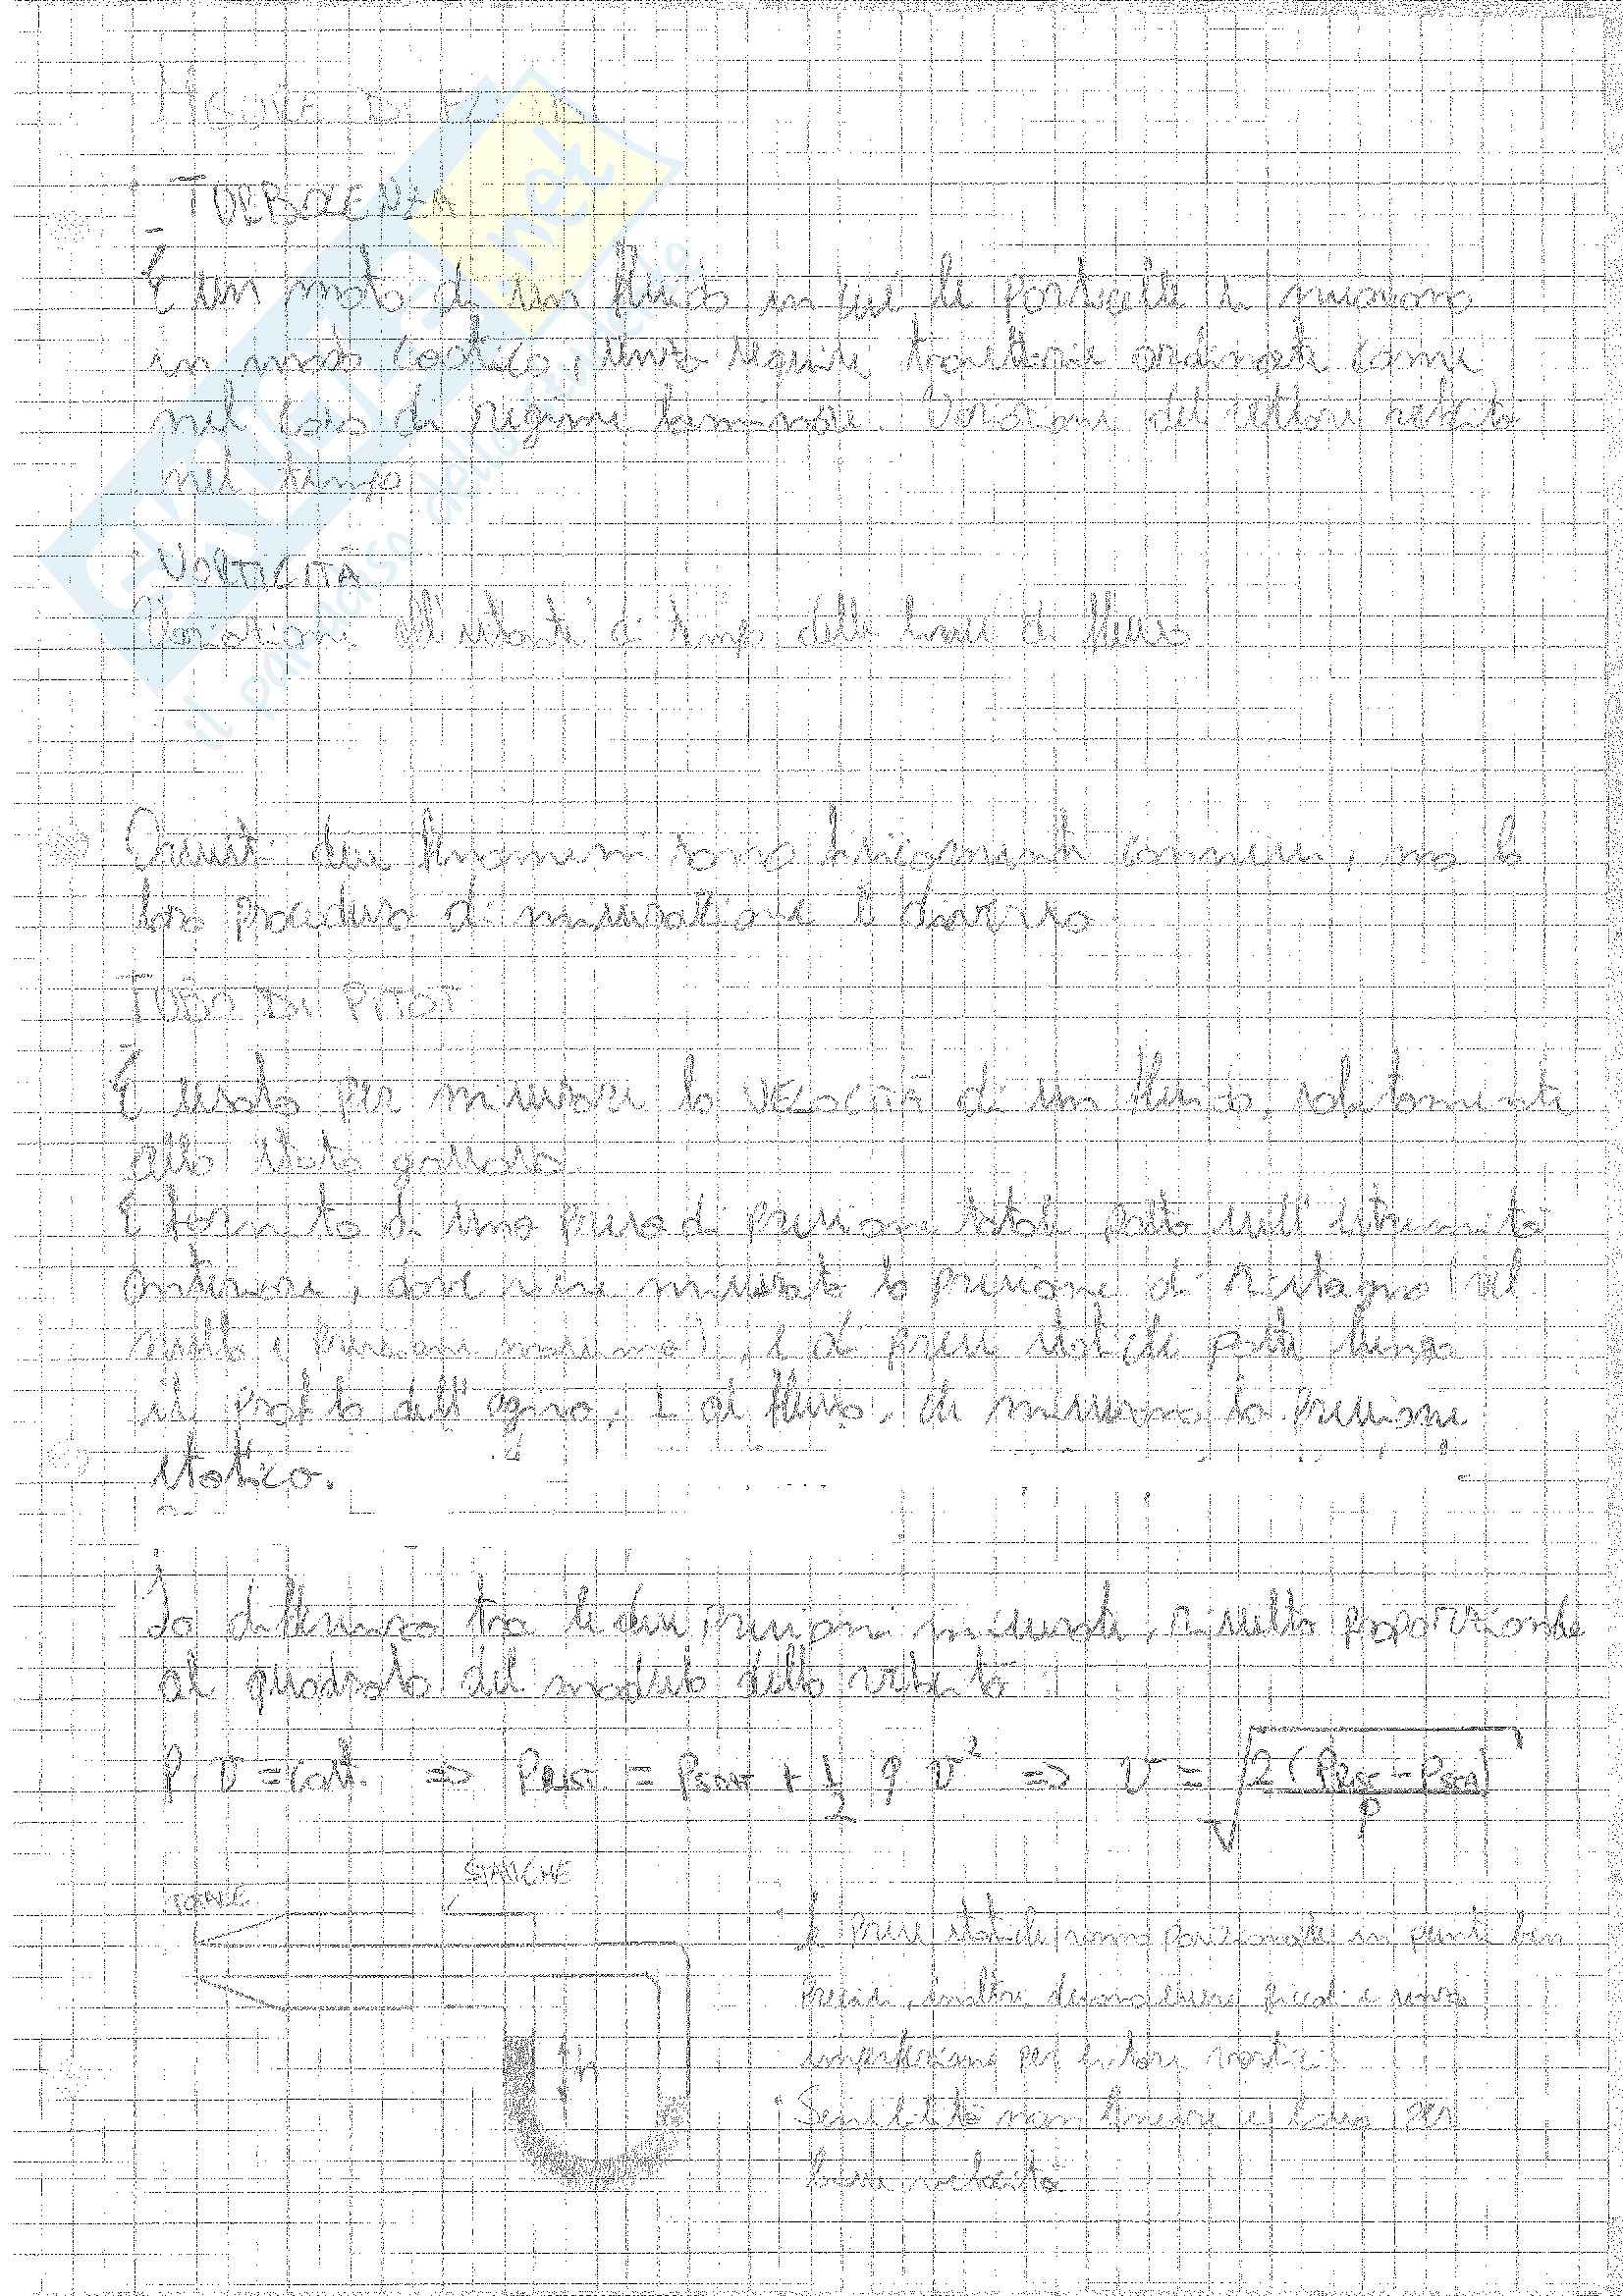 MISURE DI FLUIDI
TURBOLENZA
È un moto di un fluido in cui le particelle si muovono
in modo caotico, senza seguire traiettorie ordinate come
nel caso di regime laminare. Variazione del vettore velocità
nel tempo
VORTICITÀ
Variazione all'istante di tempo delle linee di flusso
Questi due fenomeni sono fisicamente connessi, ma la
loro procedura di misurazione è diversa
TUBO DI PITOT
È usato per misurare la VELOCITÀ di un fluido, solitamente
allo stato gassoso
È fornito di una presa di pressione totale posta sull'estremità
anteriore, dove viene misurata la pressione di ristagno (vel
nulla e pressione massima), e di prese statiche poste lungo
il profilo dell'ogiva, ⊥ al flusso, che misurano la pressione
statica.
La differenza tra le due pressioni misurate, risulta proporzionale
al quadrato del modulo della velocità
ρ v = cost. => PRIST = PSTAT + 1/2 ρ v² => v = √(2 (PRIST - PSTAT)/ρ)
STATICHE
TOTALE
h
Le prese statiche vanno posizionate in punti ben
precisi, inoltre devono essere piccole e senza
imperfezioni per evitare vortici
Sensibilità non lineare e bassa per
basse velocità